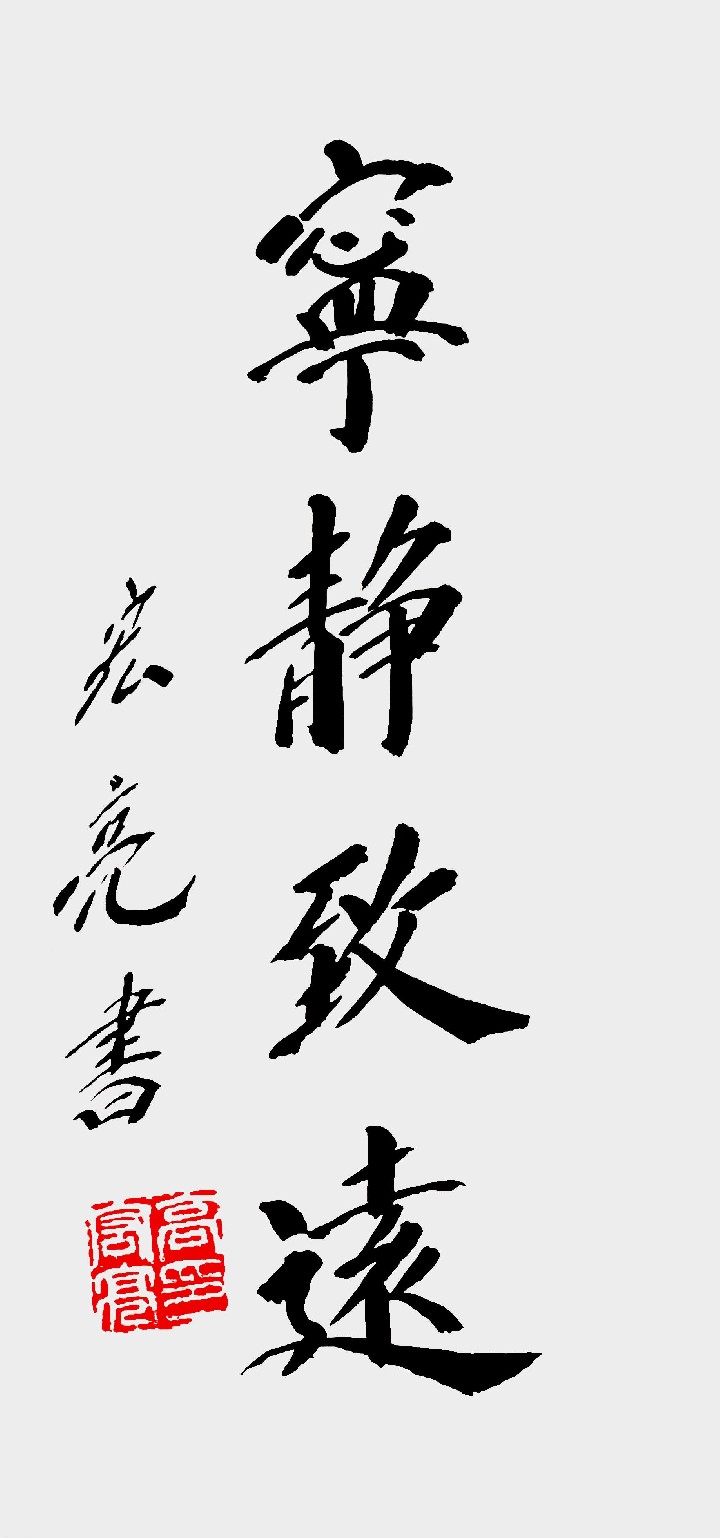 寧静致遠
宏亮書